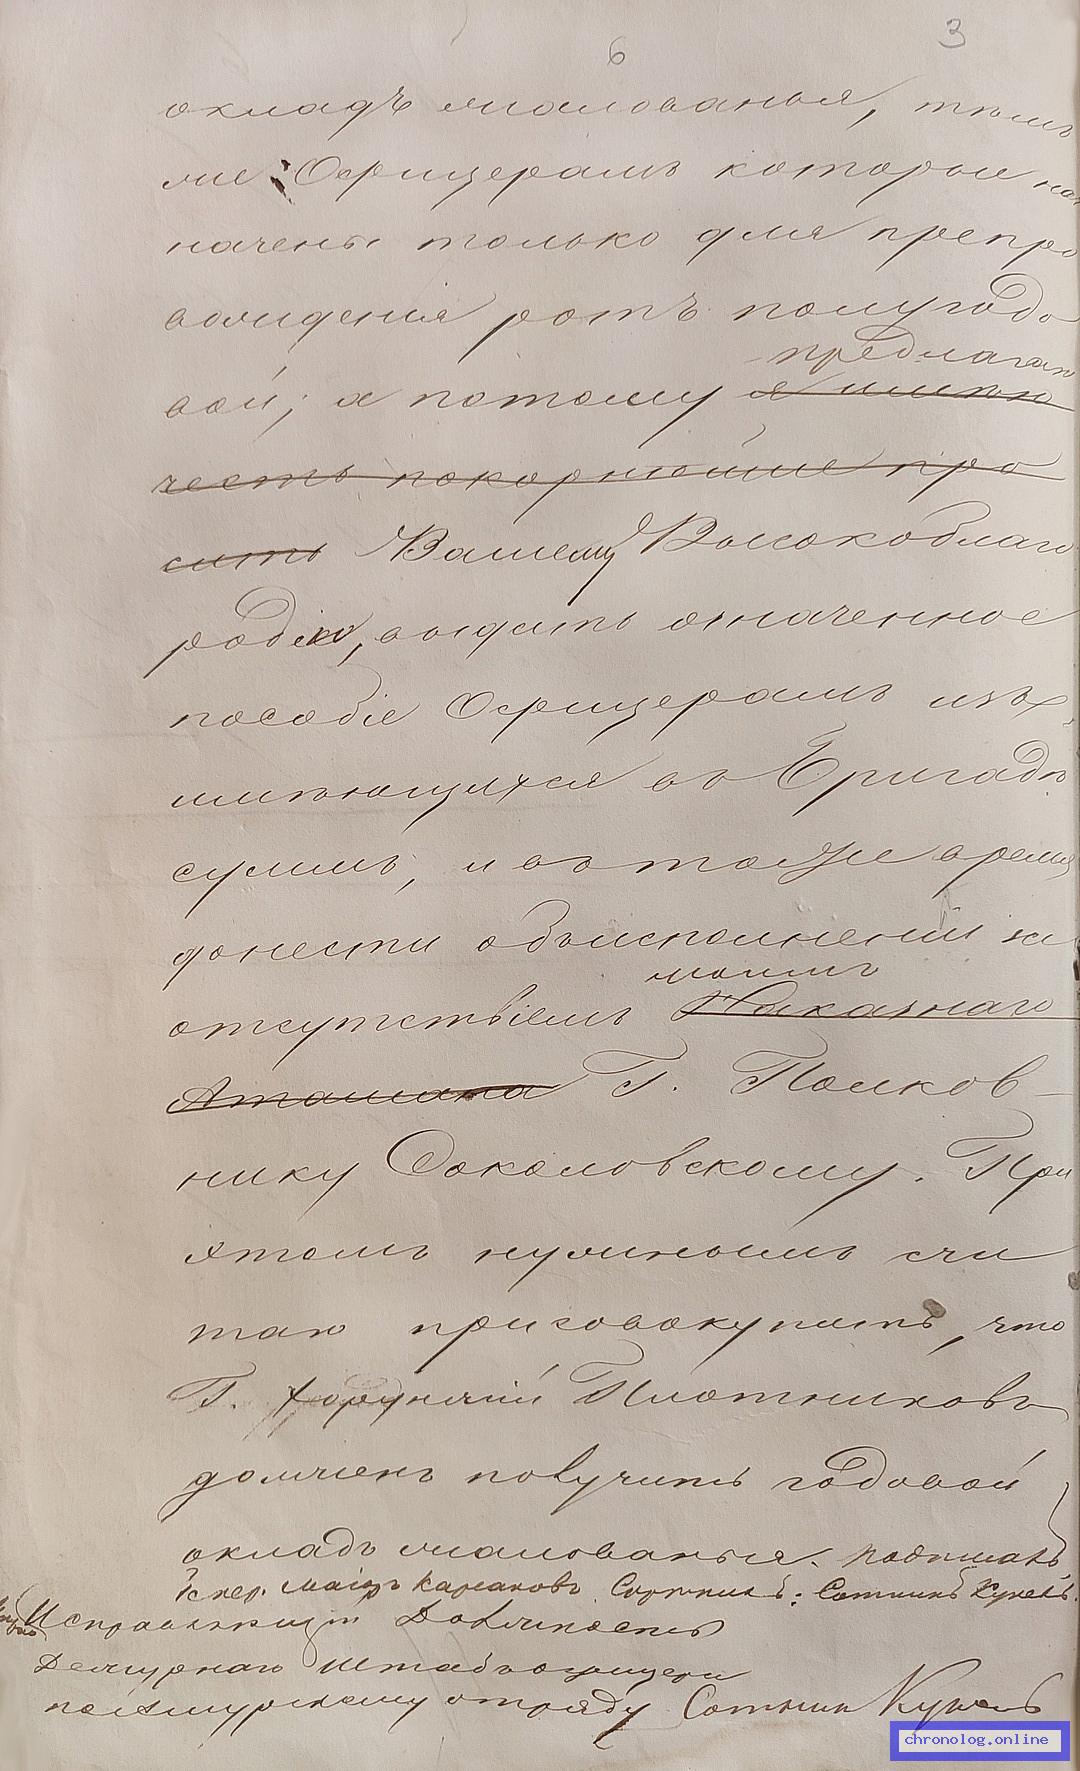 3
6
окладъ жалованья, тѣмъ
же Офицерамъ которые наз
начены только для препро
вожденія ротъ полугодо
предлагаю
вой; а потому я имѣю
честь покорнѣйше про
сить Вашему Высокоблаго
родію, выдать означенное
пособіе Офицерамъ изъ
имѣющихся въ Бригадѣ
суммъ, и въ тоже время
донести объ исполненіи за
моимъ
отсутствіемъ Наказнаго
Атамана Г. Полков-
нику Соколовскому. При
этомъ нужнымъ счи
таю присовокупить, что
Г. Хорунжій Плотниковъ
долженъ получить годовой
окладъ жалованья. подписалъ
Генер. Маіоръ Карсаковъ Скрѣпилъ: Сотникъ Кукель.
Исправляющій Должность
Дежурнаго Штабъ офицера
по Амурскому отряду Сотник Кукель
chronolog.online